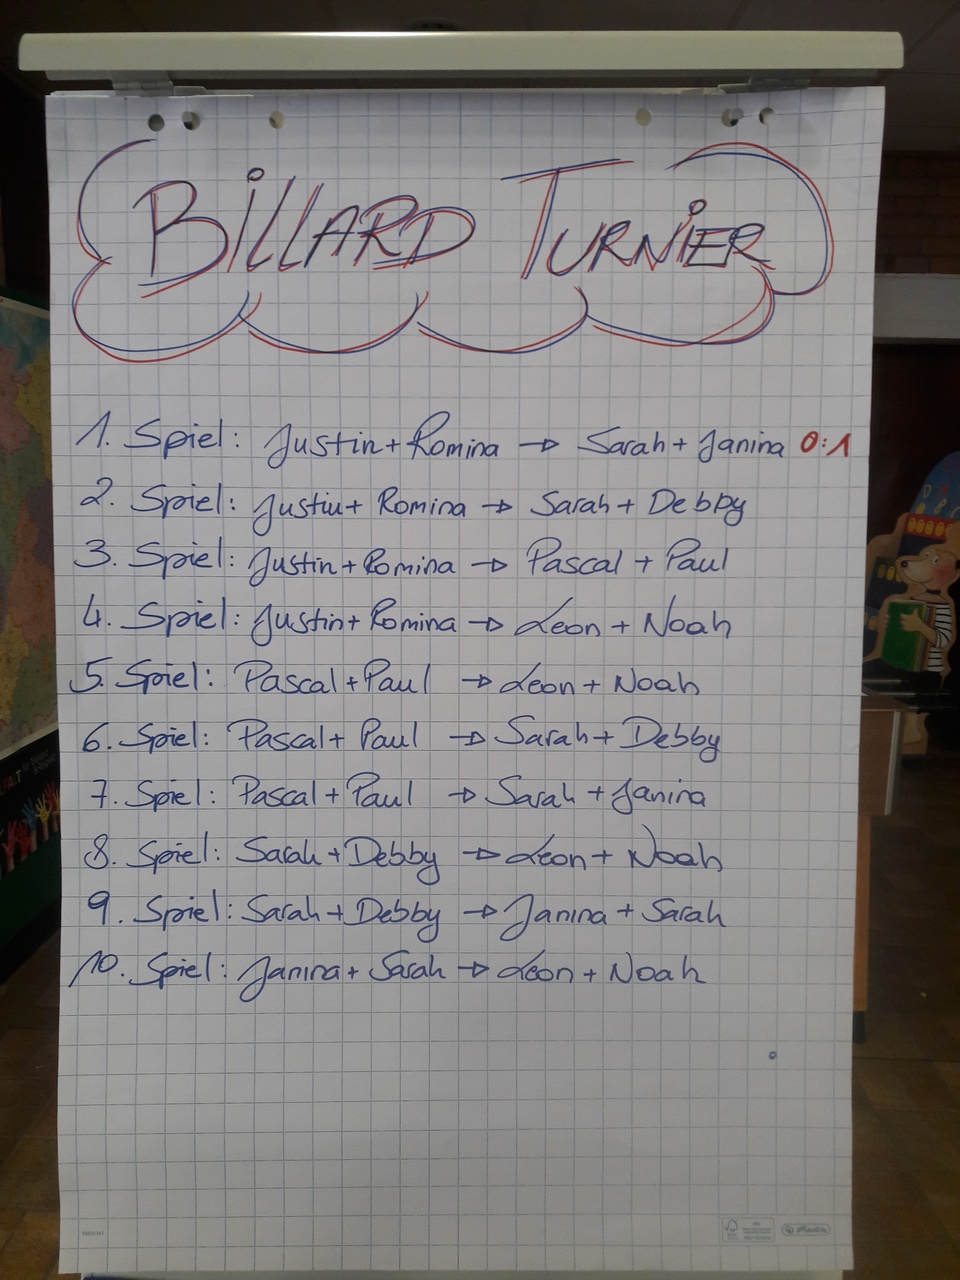 BILLARD TURNIER
1. Spiel: Justin + Romina → Sarah + Janina 0:1
2. Spiel: Justin + Romina → Sarah + Debby
3. Spiel: Justin + Romina → Pascal + Paul
4. Spiel: Justin + Romina → Leon + Noah
5. Spiel: Pascal + Paul → Leon + Noah
6. Spiel: Pascal + Paul → Sarah + Debby
7. Spiel: Pascal + Paul → Sarah + Janina
8. Spiel: Sarah + Debby → Leon + Noah
9. Spiel: Sarah + Debby → Janina + Sarah
10. Spiel: Janina + Sarah → Leon + Noah